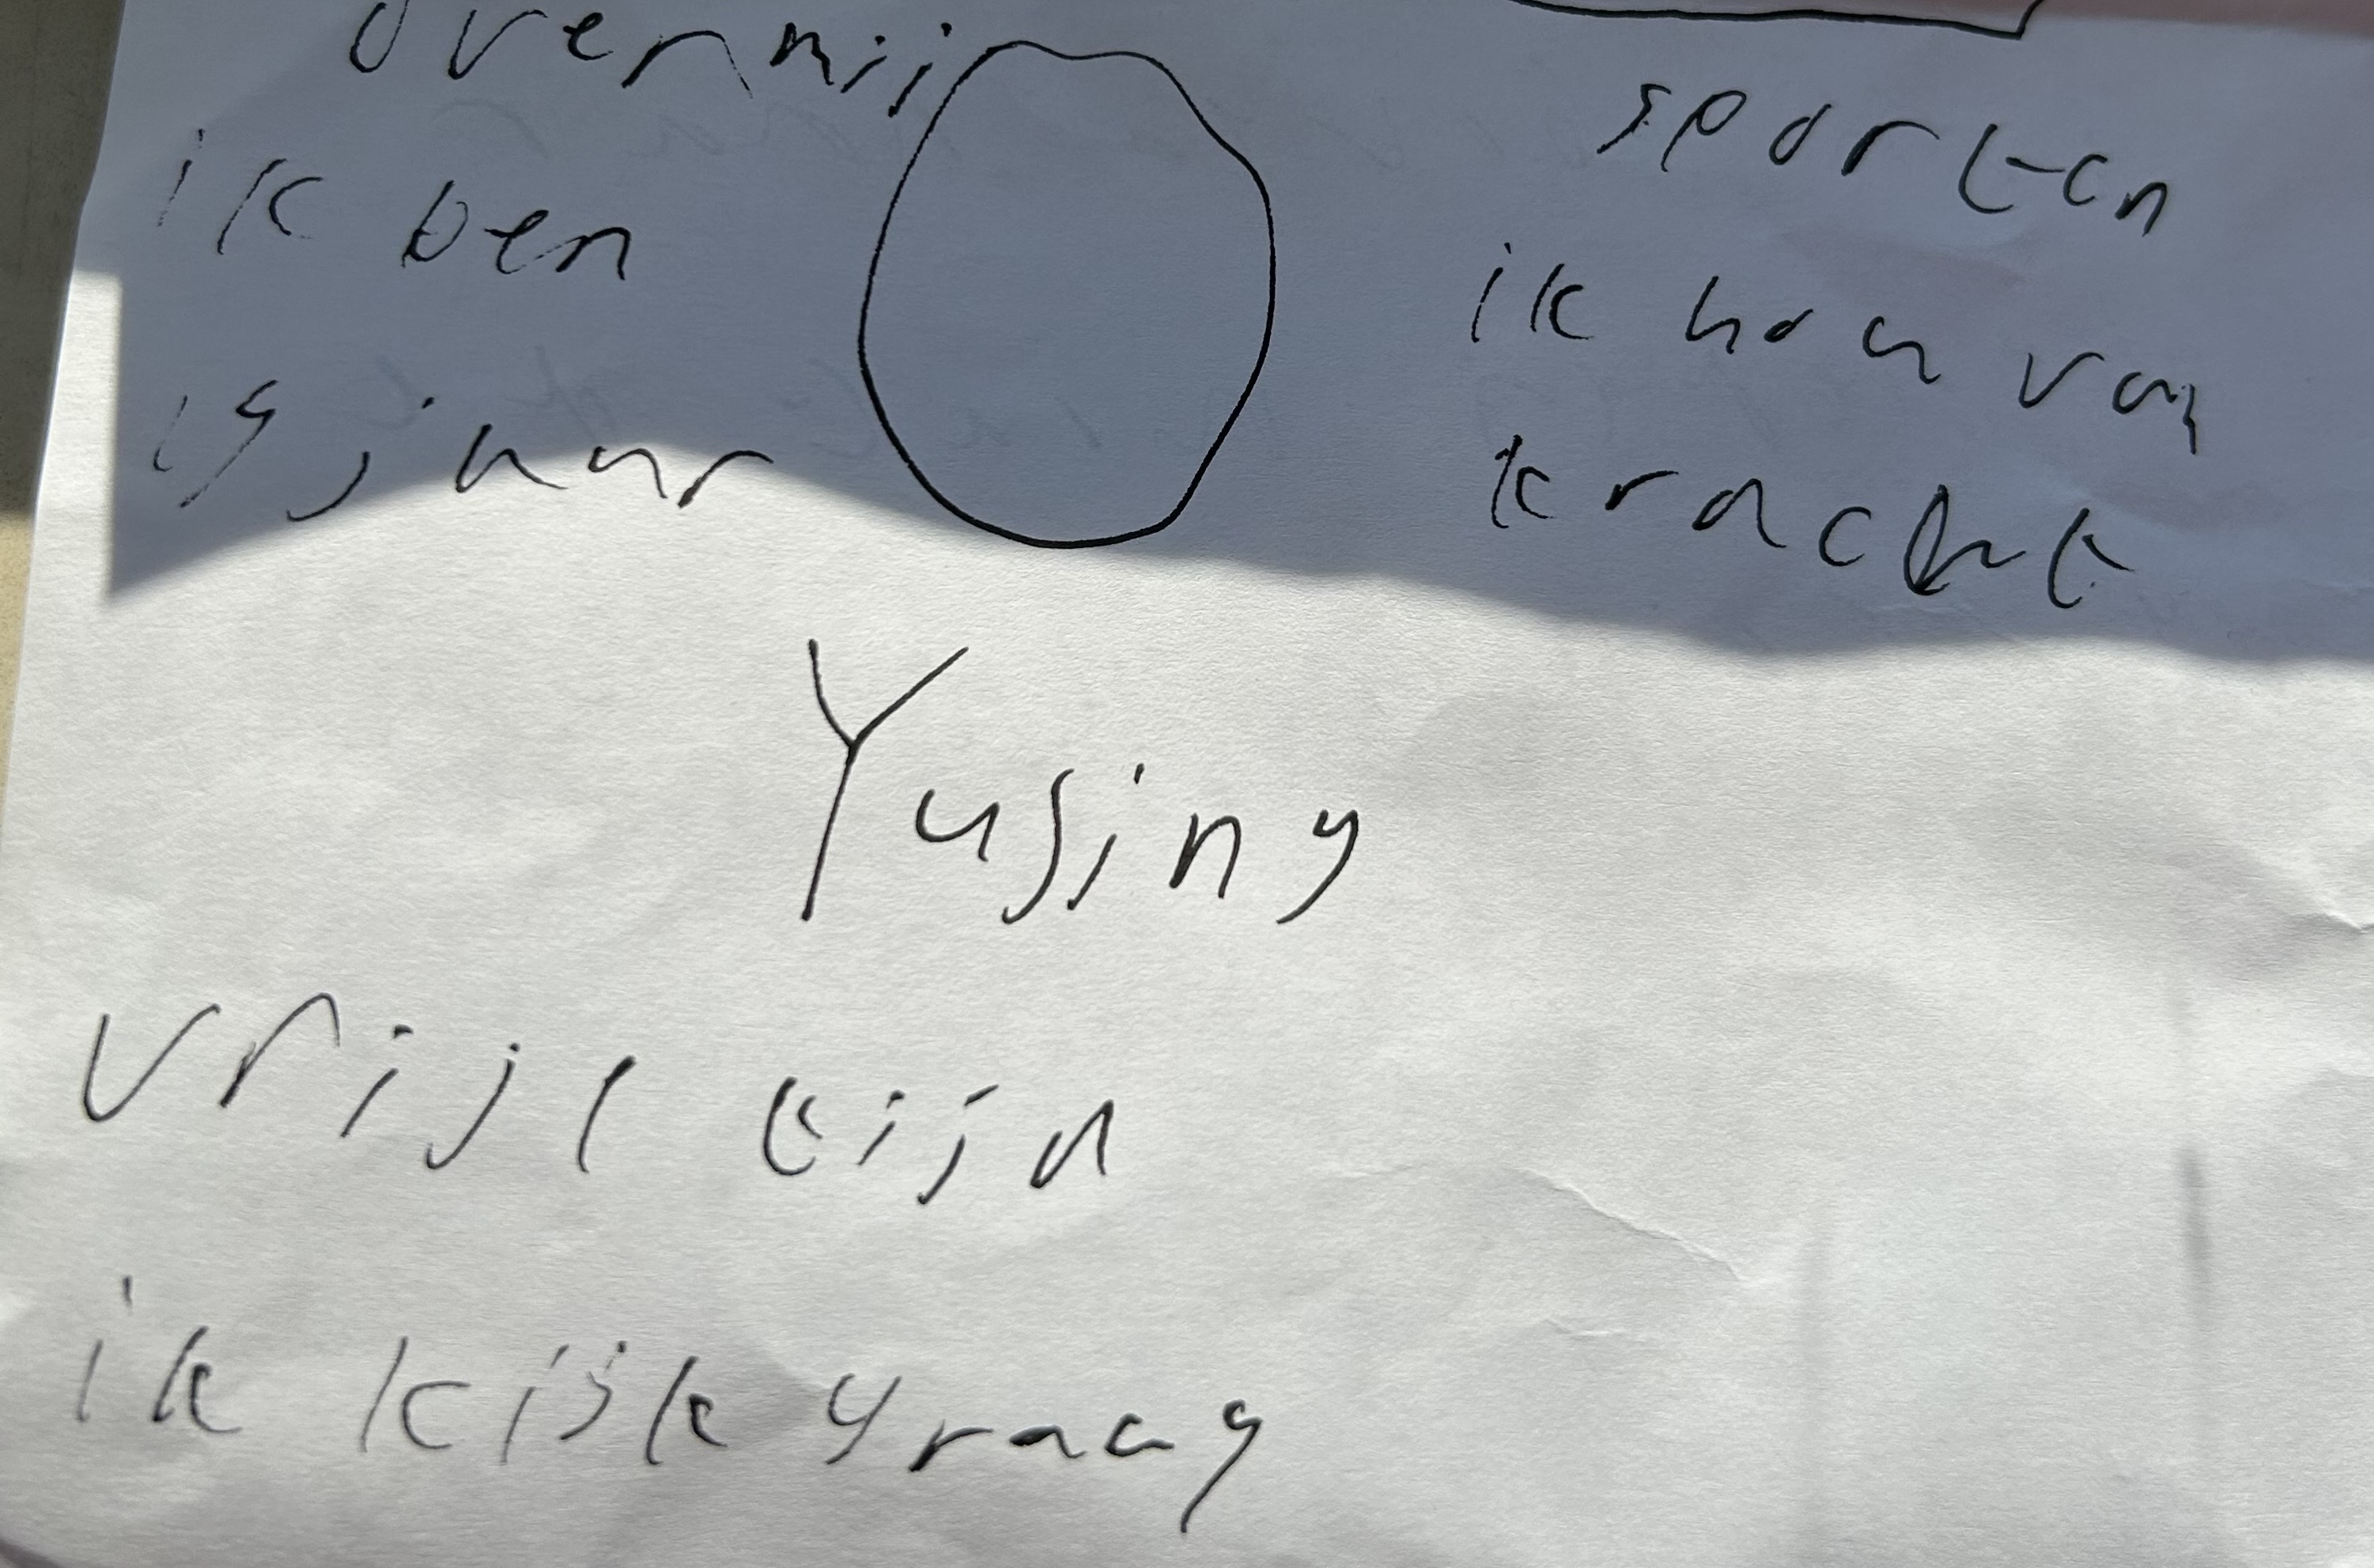 over mij
ik ben
15 jaar
sporten
ik hou van
kracht
Yusing
vrije tijd
ik kijk graag